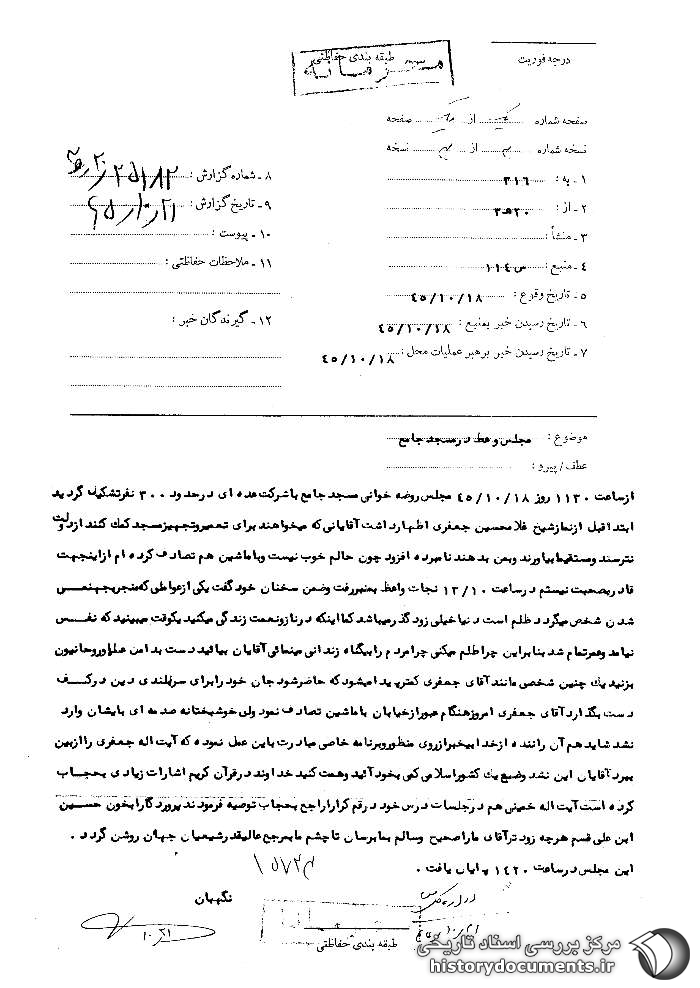 درجه فوریت
طبقه بندی حفاظتی
صفحه شماره یک از یک صفحه
نسخه شماره از نسخه
۱ـ به : ۳۱۶
۲ـ از : ۲۰هـ۳
۳ـ منشأ :
۴ـ منبع : س ۱۱۴
۵ـ تاریخ وقوع : ۴۵/۱۰/۱۸
۶ـ تاریخ رسیدن خبر بمنبع : ۴۵/۱۰/۱۸
۷ـ تاریخ رسیدن خبر برهبر عملیات محل : ۴۵/۱۰/۱۸
۸ـ شماره گزارش :
۹ـ تاریخ گزارش : ۴۵/۱۰/۲۱
۱۰ـ پیوست :
۱۱ـ ملاحظات حفاظتی :
۱۲ـ گیرندگان خبر :
موضوع : مجلس وعظ در مسجد جامع
عطف/پیرو :
از ساعت ۱۱۳۰ روز ۴۵/۱۰/۱۸ مجلس روضه خوانی مسجد جامع با شرکت عده ای در حدود ۳۰۰ نفر تشکیل گردید
ابتدا قبل از نماز شیخ غلامحسین جعفری اظهار داشت آقایانی که میخواهند برای تعمیر و تجهیز مسجد کمک کنند از دولت
نترسند و مستقیما بیاورند و بمن بدهند نامبرده افزود چون حالم خوب نیست و با ماشین هم تصادف کرده ام از اینجهت
قادر بصحبت نیستم در ساعت ۱۳/۱۰ نجات واعظ بمنبر رفت و ضمن سخنان خود گفت یکی از عواملی که منجر بجهنمی
شدن شخص میگردد ظلم است دنیا خیلی زود گذر میباشد کما اینکه در ناز و نعمت زندگی میکنید یکوقت میبینید که نفس
نیامد و عمر تمام شد بنا براین چرا ظلم میکنی چرا مردم را بیگناه زندانی مینمائی آقایان بیائید دست بدامن علما و روحانیون
بزنید یک چنین شخصی مانند آقای جعفری کمتر پیدا میشود که حاضر شود جان خود را برای سربلندی دین در کف
دست بگذارد آقای جعفری امروز هنگام عبور از خیابان با ماشین تصادف نمود ولی خوشبختانه صدمه ای بایشان وارد
نشد شاید هم آن راننده از خدا بیخبر از روی منظور و برنامه خاصی مبادرت باین عمل نموده که آیت اله جعفری را از بین
ببرد آقایان این نشد وضع یک کشور اسلامی کمی بخود آئید و همت کنید خداوند در قرآن کریم اشارات زیادی بحجاب
کرده است آیت اله خمینی هم در جلسات درس خود در قم کرارا راجع بحجاب توصیه فرمودند پروردگارا بخون حسین
ابن علی قسم هرچه زودتر آقای ما را صحیح و سالم بما برسان تا چشم ما بمرجع عالیقدر شیعیان جهان روشن گردد .
این مجلس در ساعت ۱۴۲۰ پایان یافت .
نگهبان
۱۰/۲۱
طبقه بندی حفاظتی
مرکز بررسی اسناد تاریخی
historydocuments.ir